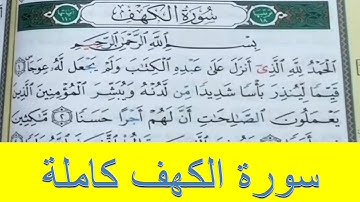 سُورَةُ الكَهْفِ
بِسْمِ اللَّهِ الرَّحْمَٰنِ الرَّحِيمِ
الْحَمْدُ لِلَّهِ الَّذِي أَنْزَلَ عَلَىٰ عَبْدِهِ الْكِتَابَ وَلَمْ يَجْعَل لَّهُ عِوَجًا ١
قَيِّمًا لِّيُنذِرَ بَأْسًا شَدِيدًا مِّن لَّدُنْهُ وَيُبَشِّرَ الْمُؤْمِنِينَ الَّذِينَ
يَعْمَلُونَ الصَّالِحَاتِ أَنَّ لَهُمْ أَجْرًا حَسَنًا ٢ مَّاكِثِينَ
سورة الكهف كاملة